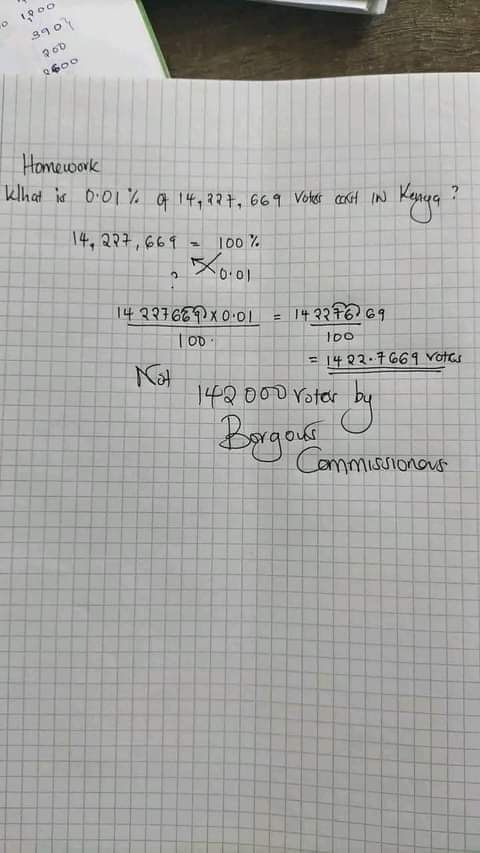 1,200
390
200
2600
Homework
What is 0.01% of 14,227,669 Votes cast in Kenya?
14,227,669 = 100%
? 0.01
14227669 x 0.01 = 142276.69
100. 100
= 1422.7669 votes
Not
142000 votes by
Borgous
Commissionous